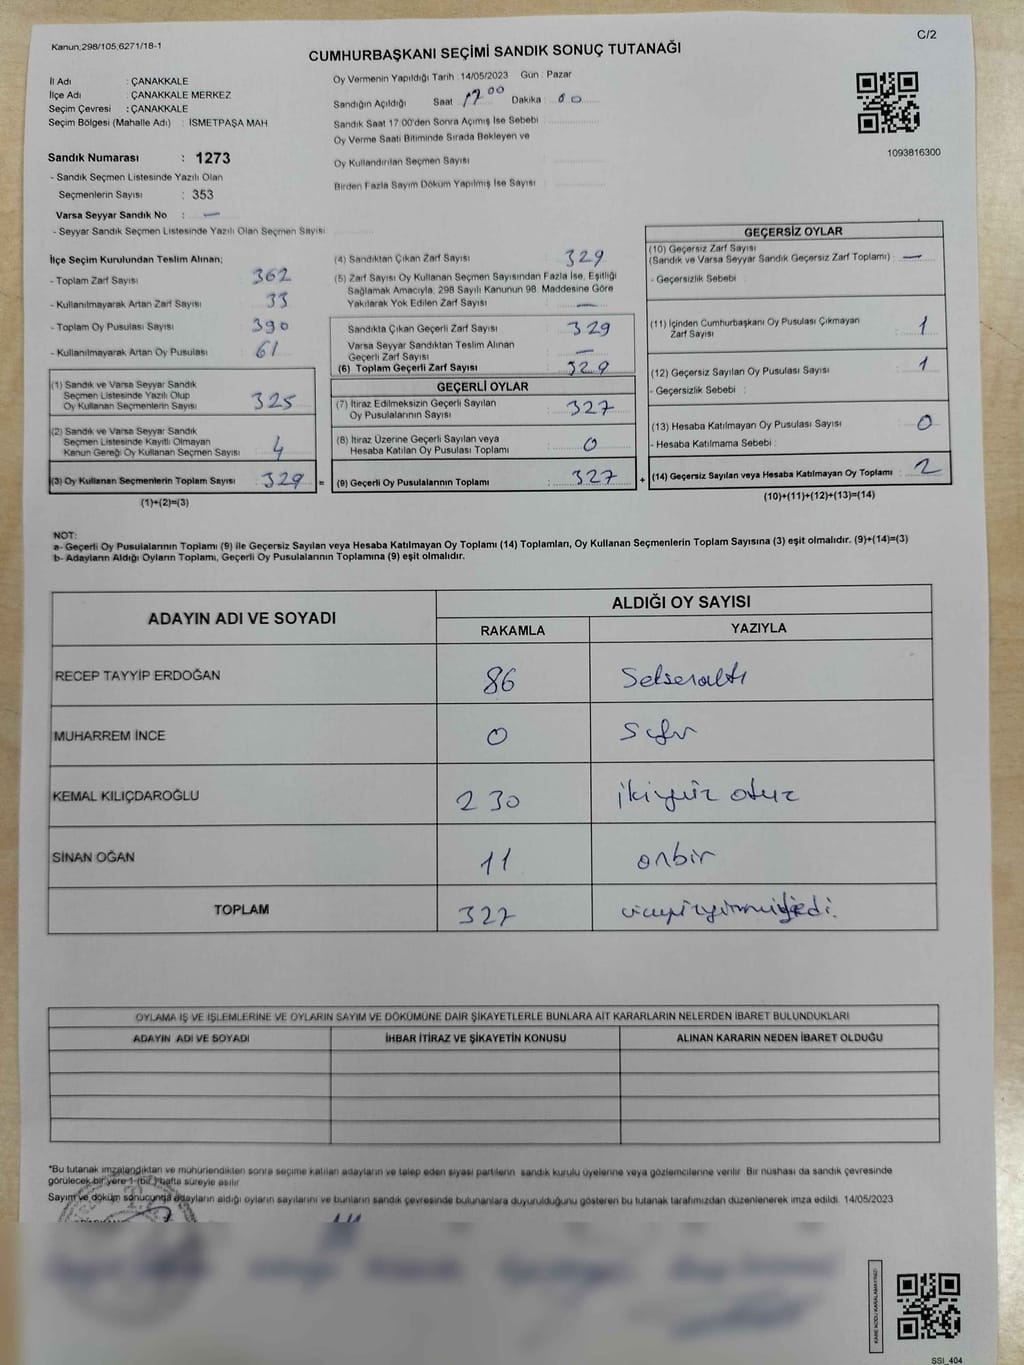 Kanun,298/105,6271/18-1
C/2
CUMHURBAŞKANI SEÇİMİ SANDIK SONUÇ TUTANAĞI
İl Adı : ÇANAKKALE
İlçe Adı : ÇANAKKALE MERKEZ
Seçim Çevresi : ÇANAKKALE
Seçim Bölgesi (Mahalle Adı) : İSMETPAŞA MAH
Sandık Numarası : 1273
- Sandık Seçmen Listesinde Yazılı Olan
Seçmenlerin Sayısı : 353
Varsa Seyyar Sandık No : —
- Seyyar Sandık Seçmen Listesinde Yazılı Olan Seçmen Sayısı
Oy Vermenin Yapıldığı Tarih : 14/05/2023 Gün : Pazar
Sandığın Açıldığı Saat 17 00 Dakika
Sandık Saat 17:00'den Sonra Açımış İse Sebebi
Oy Verme Saati Bitiminde Sırada Bekleyen ve
Oy Kullandırılan Seçmen Sayısı
Birden Fazla Sayım Döküm Yapılmış İse Sayısı
1093816300
İlçe Seçim Kurulundan Teslim Alınan;
- Toplam Zarf Sayısı 362
- Kullanılmayarak Artan Zarf Sayısı 33
- Toplam Oy Pusulası Sayısı 390
- Kullanılmayarak Artan Oy Pusulası 61
(1) Sandık ve Varsa Seyyar Sandık
Seçmen Listesinde Yazılı Olup
Oy Kullanan Seçmenlerin Sayısı 325
(2) Sandık ve Varsa Seyyar Sandık
Seçmen Listesinde Kayıtlı Olmayan
Kanun Gereği Oy Kullanan Seçmen Sayısı 4
(3) Oy Kullanan Seçmenlerin Toplam Sayısı : 329 =
(1)+(2)=(3)
(4) Sandıktan Çıkan Zarf Sayısı 329
(5) Zarf Sayısı Oy Kullanan Seçmen Sayısından Fazla İse, Eşitliği
Sağlamak Amacıyla, 298 Sayılı Kanunun 98. Maddesine Göre
Yakılarak Yok Edilen Zarf Sayısı —
Sandıkta Çıkan Geçerli Zarf Sayısı 329
Varsa Seyyar Sandıktan Teslim Alınan
Geçerli Zarf Sayısı —
(6) Toplam Geçerli Zarf Sayısı 329
GEÇERLİ OYLAR
(7) İtiraz Edilmeksizin Geçerli Sayılan
Oy Pusulalarının Sayısı 327
(8) İtiraz Üzerine Geçerli Sayılan veya
Hesaba Katılan Oy Pusulası Toplamı 0
(9) Geçerli Oy Pusulalarının Toplamı 327 +
GEÇERSİZ OYLAR
(10) Geçersiz Zarf Sayısı
(Sandık ve Varsa Seyyar Sandık Geçersiz Zarf Toplamı) : —
- Geçersizlik Sebebi :
(11) İçinden Cumhurbaşkanı Oy Pusulası Çıkmayan
Zarf Sayısı 1
(12) Geçersiz Sayılan Oy Pusulası Sayısı 1
- Geçersizlik Sebebi :
(13) Hesaba Katılmayan Oy Pusulası Sayısı 0
- Hesaba Katılmama Sebebi :
(14) Geçersiz Sayılan veya Hesaba Katılmayan Oy Toplamı : 2
(10)+(11)+(12)+(13)=(14)
NOT:
a- Geçerli Oy Pusulalarının Toplamı (9) ile Geçersiz Sayılan veya Hesaba Katılmayan Oy Toplamı (14) Toplamları, Oy Kullanan Seçmenlerin Toplam Sayısına (3) eşit olmalıdır. (9)+(14)=(3)
b- Adayların Aldığı Oyların Toplamı, Geçerli Oy Pusulalarının Toplamına (9) eşit olmalıdır.
ADAYIN ADI VE SOYADI ALDIĞI OY SAYISI
RAKAMLA YAZIYLA
RECEP TAYYİP ERDOĞAN 86 Seksenaltı
MUHARREM İNCE 0 Sıfır
KEMAL KILIÇDAROĞLU 230 ikiyüz otuz
SİNAN OĞAN 11 onbir
TOPLAM 327 üçyüzyirmiyedi.
OYLAMA İŞ VE İŞLEMLERİNE VE OYLARIN SAYIM VE DÖKÜMÜNE DAİR ŞİKAYETLERLE BUNLARA AİT KARARLARIN NELERDEN İBARET BULUNDUKLARI
ADAYIN ADI VE SOYADI İHBAR İTİRAZ VE ŞİKAYETİN KONUSU ALINAN KARARIN NEDEN İBARET OLDUĞU
*Bu tutanak imzalandıktan ve mühürlendikten sonra seçime katılan adayların ve talep eden siyasi partilerin sandık kurulu üyelerine veya gözlemcilerine verilir. Bir nüshası da sandık çevresinde
görülecek bir yere 1 (bir) hafta süreyle asılır
Sayım ve döküm sonucunda adayların aldığı oyların sayılarını ve bunların sandık çevresinde bulunanlara duyurulduğunu gösteren bu tutanak tarafımızdan düzenlenerek imza edildi. 14/05/2023
SSI_404